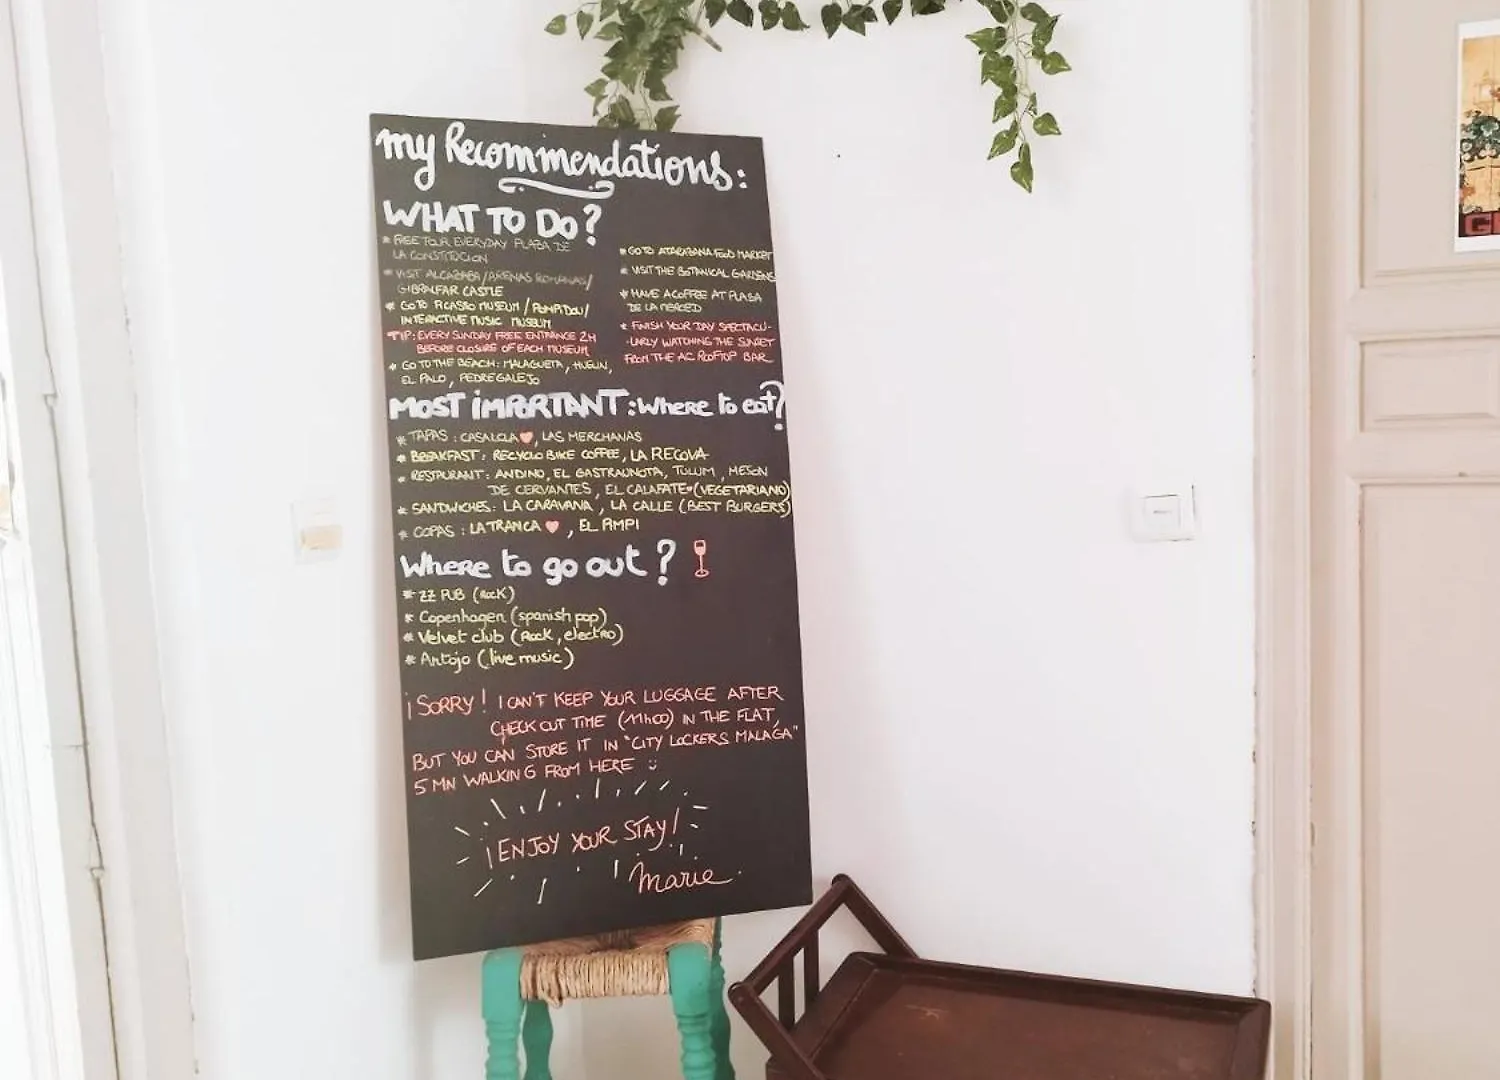 my Recommendations:
WHAT TO DO?
* FREE TOUR EVERYDAY PLABA DE
LA CONSTITUCION
* VISIT ALCAZABA/ARENAS ROMANAS/
GIBRALFAR CASTLE
* GO TO PICASSO MUSEUM / POMPIDOU /
INTERACTIVE MUSIC MUSEUM
TIP: EVERY SUNDAY FREE ENTRANCE 2H
BEFORE CLOSURE OF EACH MUSEUM
* GO TO THE BEACH: MALAGUETA, HUELIN,
EL PALO, PEDREGALEJO
* GO TO ATARABANA FOOD MARKET
* VISIT THE BOTANICAL GARDENS
* HAVE A COFFEE AT PLASA
DE LA MERCED
* FINISH YOUR DAY SPECTACU-
-LARLY WATCHING THE SUNSET
FROM THE AC ROOFTOP BAR
MOST IMPORTANT: Where to eat?
* TAPAS: CASALOLA ♥, LAS MERCHANAS
* BREAKFAST: RECYCLO BIKE COFFEE, LA RECOVA
* RESTAURANT: ANDINO, EL GASTRAUNOTA, TULUM, MESON
DE CERVANTES, EL CALAFATE (VEGETARIANO)
* SANDWICHES: LA CARAVANA, LA CALLE (BEST BURGERS)
* COPAS: LA TRANCA ♥, EL PIMPI
Where to go out?
* ZZ PUB (Rock)
* Copenhagen (spanish pop)
* Velvet club (Rock, electro)
* Antojo (live music)
¡SORRY! I CAN'T KEEP YOUR LUGGAGE AFTER
CHECK OUT TIME (11h00) IN THE FLAT,
BUT YOU CAN STORE IT IN "CITY LOCKERS MALAGA"
5 MN WALKING FROM HERE :)
¡ENJOY YOUR STAY!
Marie